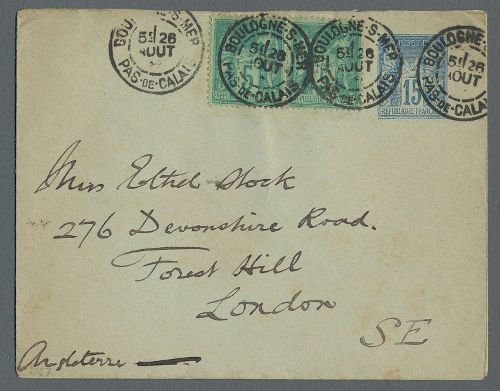 BOULOGNE-S-MER
5E/26
AOUT
PAS-DE-CALAIS
BOULOGNE-S-MER
5E/26
AOUT
PAS-DE-CALAIS
BOULOGNE-S-MER
5E/26
AOUT
PAS-DE-CALAIS
BOULOGNE-S-MER
5E/26
AOUT
PAS-DE-CALAIS
15
REPUBLIQUE FRANCAISE
Miss Ethel Stock
276 Devonshire Road.
Forest Hill
London
SE
Angleterre